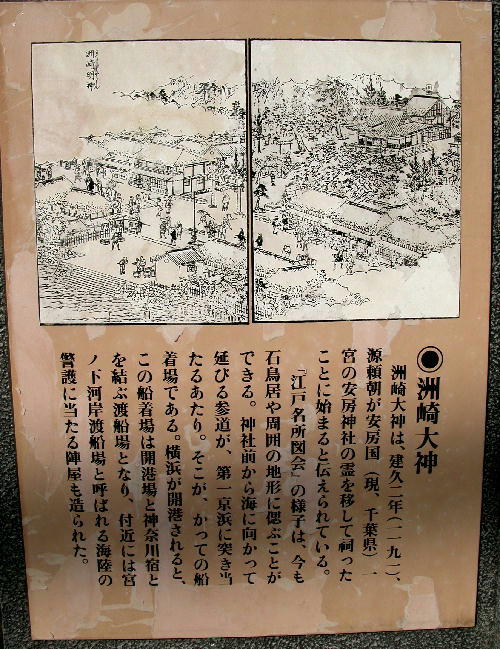 洲崎明神
◉洲崎大神
洲崎大神は、建久二年(一一九一)、
源頼朝が安房国(現、千葉県)一
宮の安房神社の霊を移して祠った
ことに始まると伝えられている。
『江戸名所図会』の様子は、今も
石鳥居や周囲の地形に偲ぶことが
できる。神社前から海に向かって
延びる参道が、第一京浜に突き当
たるあたり。そこが、かっての船
着場である。横浜が開港されると、
この船着場は開港場と神奈川宿と
を結ぶ渡船場となり、付近には宮
ノ下河岸渡船場と呼ばれる海陸の
警護に当たる陣屋も造られた。